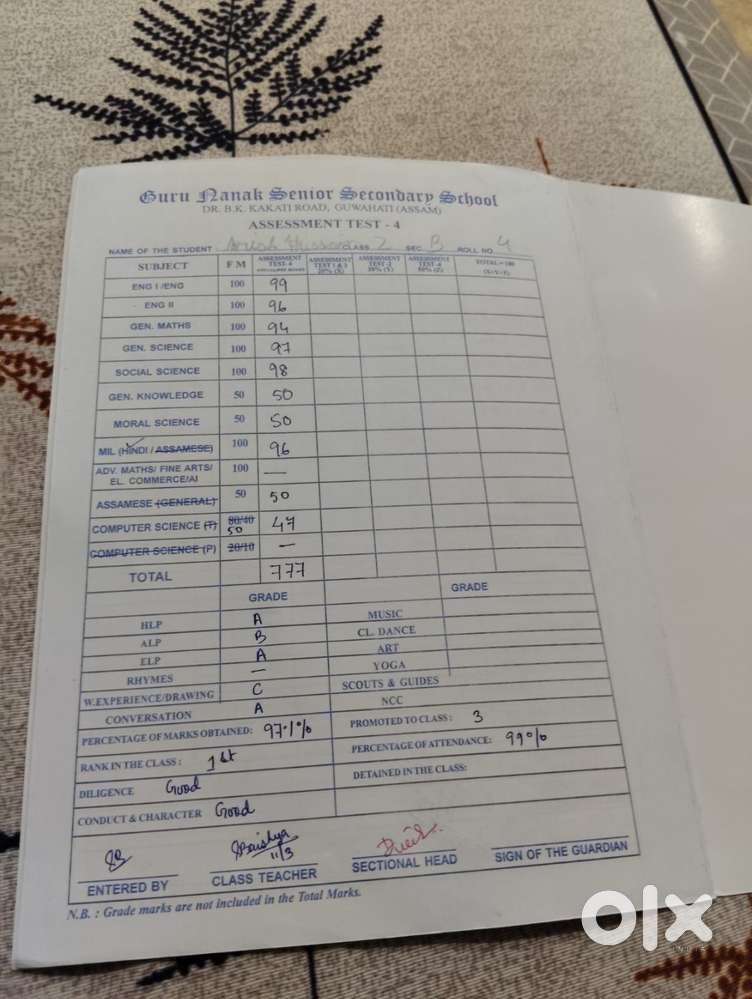 Guru Nanak Senior Secondary School
DR. B.K. KAKATI ROAD, GUWAHATI (ASSAM)
ASSESSMENT TEST - 4
NAME OF THE STUDENT Hussain CLASS 2 SEC B ROLL NO 4
SUBJECT F M ASSESSMENT TEST-4 ASSESSMENT TEST 1 & 3 20% (X) ASSESSMENT TEST-2 ASSESSMENT TEST-4 TOTAL = 100 (X+Y+Z)
ENG I /ENG 100 99
ENG II 100 96
GEN. MATHS 100 94
GEN. SCIENCE 100 97
SOCIAL SCIENCE 100 98
GEN. KNOWLEDGE 50 50
MORAL SCIENCE 50 50
MIL (HINDI / ASSAMESE) 100 96
ADV. MATHS/ FINE ARTS/ 100 —
EL. COMMERCE/AI
ASSAMESE (GENERAL) 50 50
COMPUTER SCIENCE (T) 80/40 50 47
COMPUTER SCIENCE (P) 20/10 —
TOTAL 777
GRADE GRADE
HLP A MUSIC
ALP B CL. DANCE
ELP A ART
RHYMES — YOGA
W.EXPERIENCE/DRAWING C SCOUTS & GUIDES
CONVERSATION A NCC
PERCENTAGE OF MARKS OBTAINED: 97.1% PROMOTED TO CLASS: 3
RANK IN THE CLASS: 1st PERCENTAGE OF ATTENDANCE: 99%
DILIGENCE Good DETAINED IN THE CLASS:
CONDUCT & CHARACTER Good
11/3
ENTERED BY CLASS TEACHER SECTIONAL HEAD SIGN OF THE GUARDIAN
N.B. : Grade marks are not included in the Total Marks.
olx